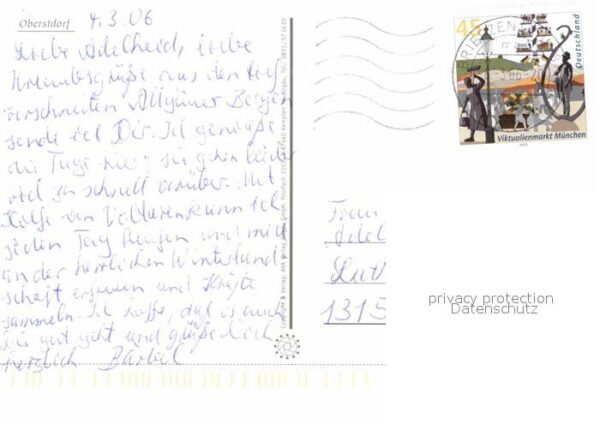 Oberstdorf 4.3.06
Liebe Adelheid, liebe
Urlaubsgrüße aus den tief
verschneiten Allgäuer Bergen
sende ich Dir. Ich genieße
die Tage hier, sie gehen leider
viel zu schnell vorüber. Mit
Hilfe von kann ich
jeden Tag laufen und mich
an der herrlichen Winterland
schaft erfreuen und Kräfte
sammeln. Ich hoffe, daß es auch
gut geht und grüße Dich
herzlich Bärbel
Copyright & Verlag: AVA Verlag
45
Deutschland
Viktualienmarkt München
Frau
Adel
1315
privacy protection
Datenschutz